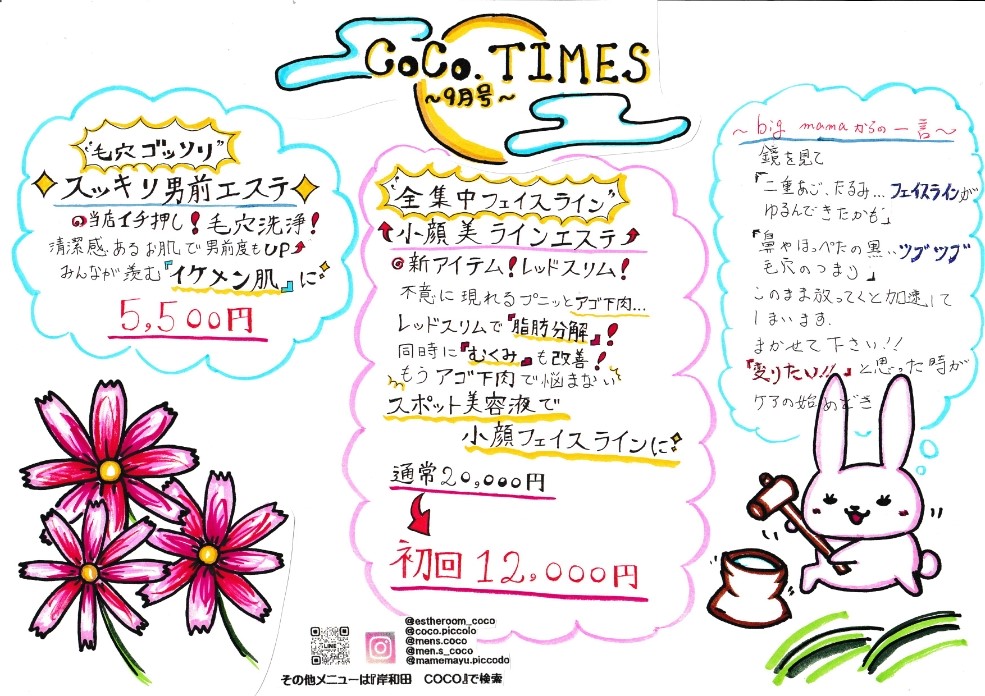 CoCo.TIMES
～9月号～
"毛穴ゴッソリ"
スッキリ男前エステ
◎当店イチ押し!毛穴洗浄!
清潔感あるお肌で男前度もUP
みんなが羨む『イケメン肌』に
5,500円
"全集中フェイスライン"
小顔美ラインエステ
◎新アイテム!レッドスリム!
不意に現れるプニッとアゴ下肉…
レッドスリムで『脂肪分解』!
同時に『むくみ』も改善!
もうアゴ下肉で悩まない
スポット美容液で
小顔フェイスラインに
通常20,000円
初回12,000円
～big mamaからの一言～
鏡を見て
『二重あご、たるみ…フェイスラインが
ゆるんできたかも』
『鼻やほっぺたの黒いツブツブ
毛穴のつまり』
このまま放ってくと加速して
しまいます.
まかせて下さい!!
『変りたい!!』と思った時が
ケアの始めどき
LINE
@estheroom_coco
@coco.piccolo
@mens.coco
@men.s_coco
@mamemayu.piccodo
その他メニューは『岸和田 COCO』で検索